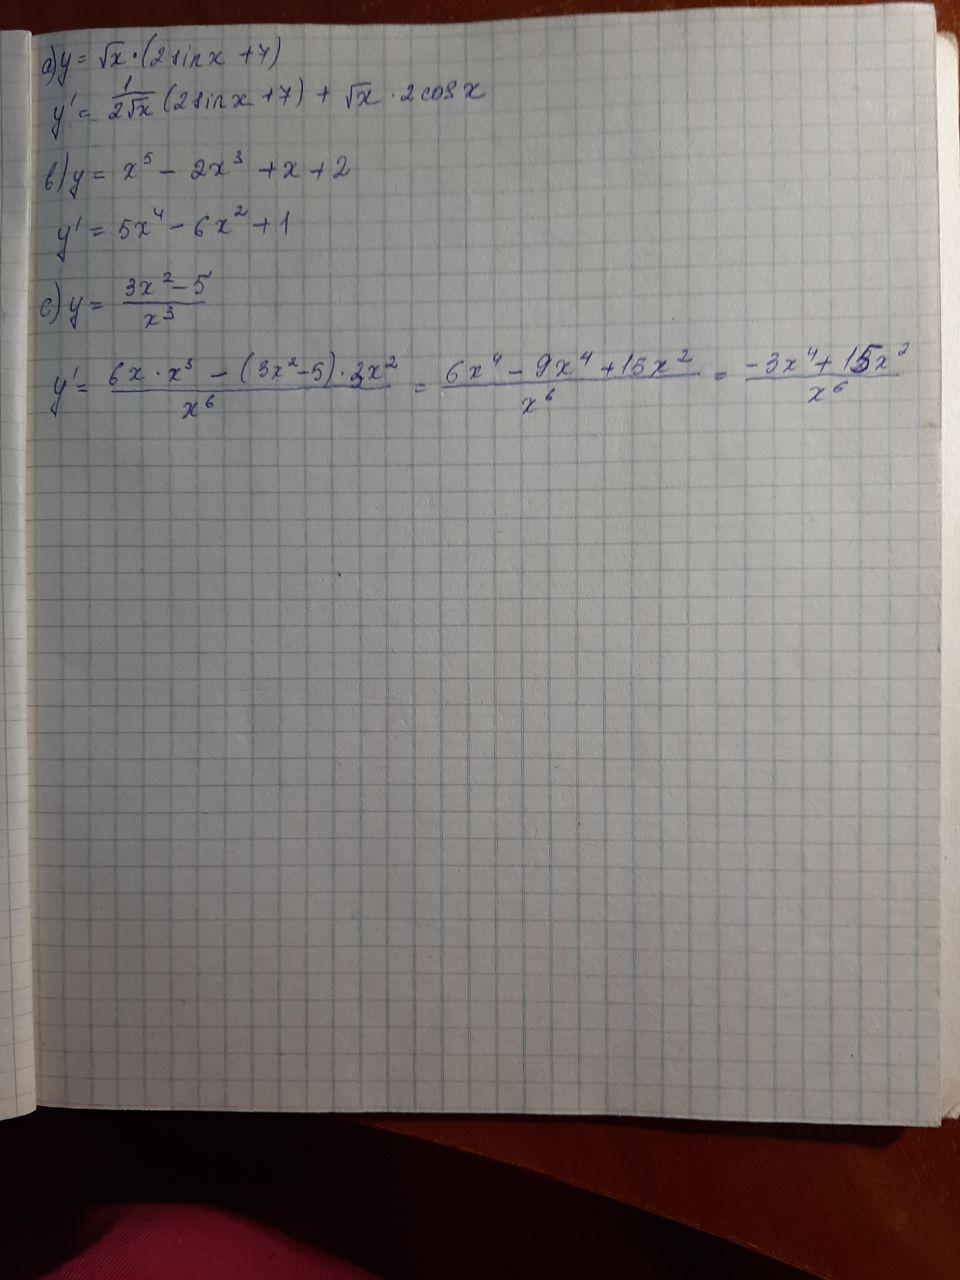 a) y = √x · (2sinx + 7)
y' = 1/(2√x) (2sinx + 7) + √x · 2cosx
b) y = x⁵ - 2x³ + x + 2
y' = 5x⁴ - 6x² + 1
c) y = (3x² - 5)/x³
y' = (6x · x³ - (3x² - 5) · 3x²)/x⁶ = (6x⁴ - 9x⁴ + 15x²)/x⁶ = (-3x⁴ + 15x²)/x⁶